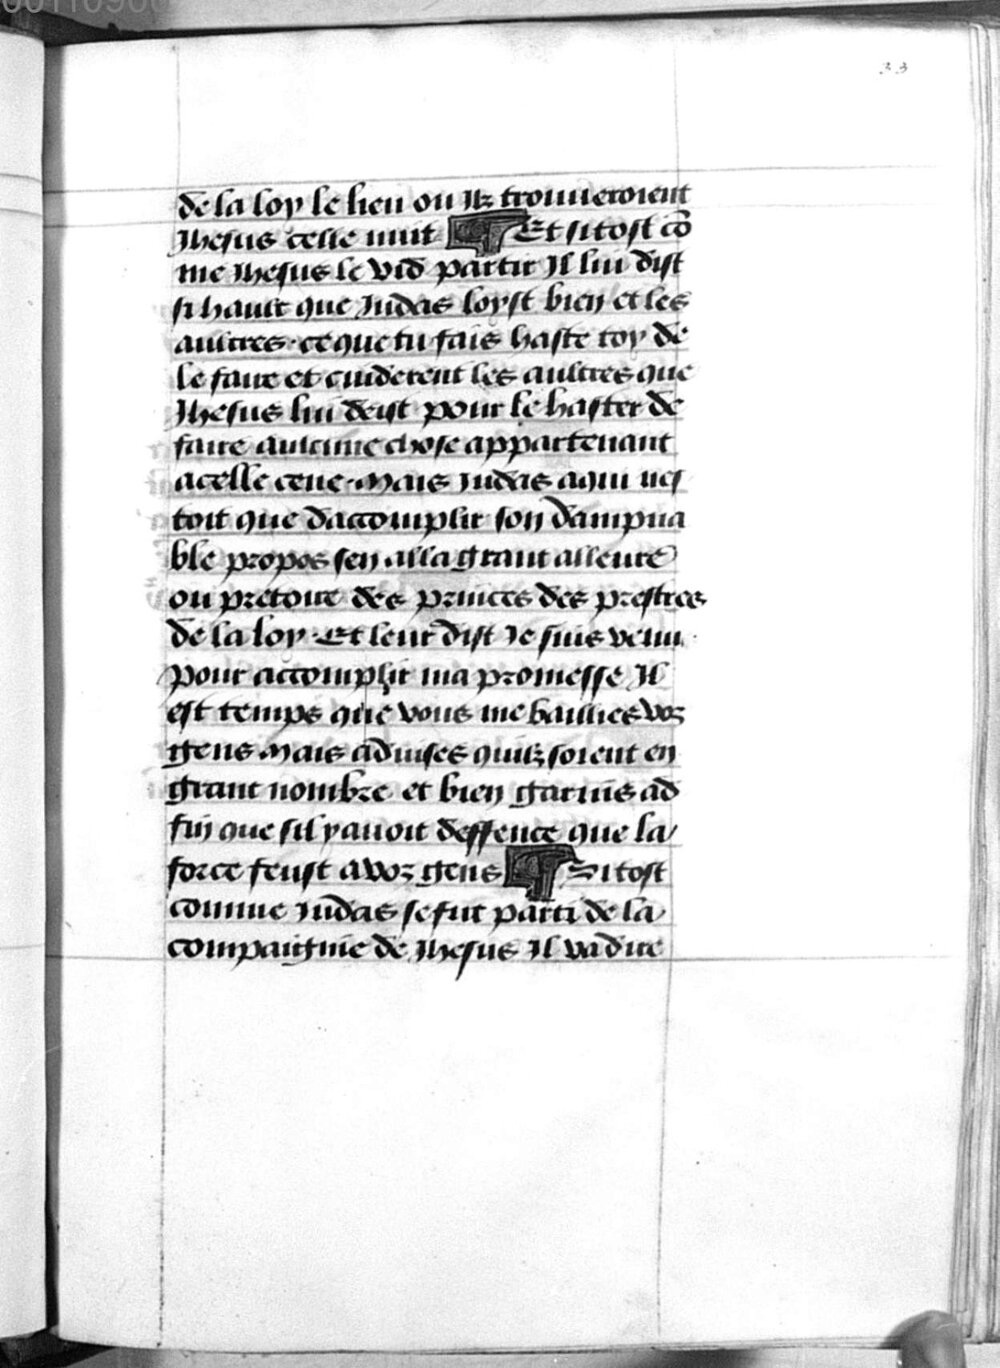 33
de la loy le lieu ou ilz trouueroient
Jhesus celle nuit ¶ Et sitost cō
me Jhesus le vid partir Il lui dist
si hault que Judas loyst bien et les
aultres · ce que tu fais haste toy de
le faire et cuiderent les aultres que
Jhesus lui deist pour le haster de
faire aulcune chose appartenant
a celle cene · Mais Judas a qui nes
toit que daccomplir son dampna
ble propos sen alla grant alleure
ou pretoire des princes des prestres
de la loy · Et leur dist Je suis venu ·
pour accomplir ma promesse Il
est temps que vous me baillies voz
gens Mais aduises quilz soient en
grant nombre et bien garnis ad
fin que sil y auoit deffence que la
force feust a voz gens ¶ Si tost
comme Judas se fut parti de la
compaignie de Jhesus Il va dire